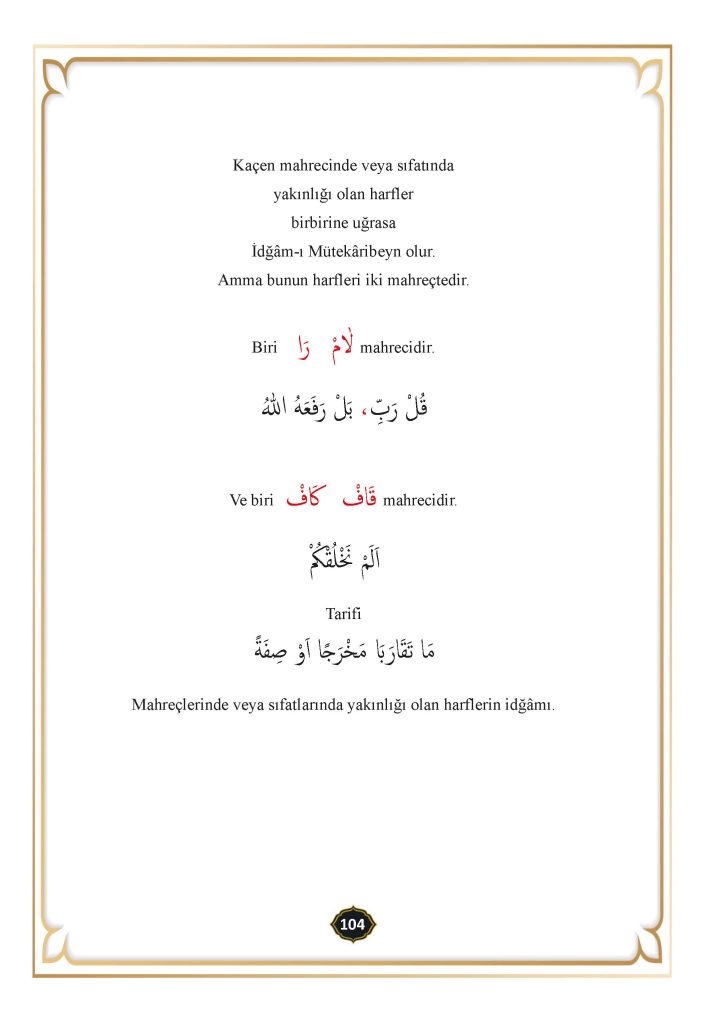 Kaçen mahrecinde veya sıfatında
yakınlığı olan harfler
birbirine uğrasa
İdğâm-ı Mütekâribeyn olur.
Amma bunun harfleri iki mahreçtedir.
Biri لٰامْ رَا mahrecidir.
قُلْ رَبِّ، بَلْ رَفَعَهُ اللهُ
Ve biri قَافْ كَافْ mahrecidir.
اَلَمْ نَخْلُقْكُمْ
Tarifi
مَا تَقَارَبَا مَخْرَجًا اَوْ صِفَةً
Mahreçlerinde veya sıfatlarında yakınlığı olan harflerin idğâmı.
104